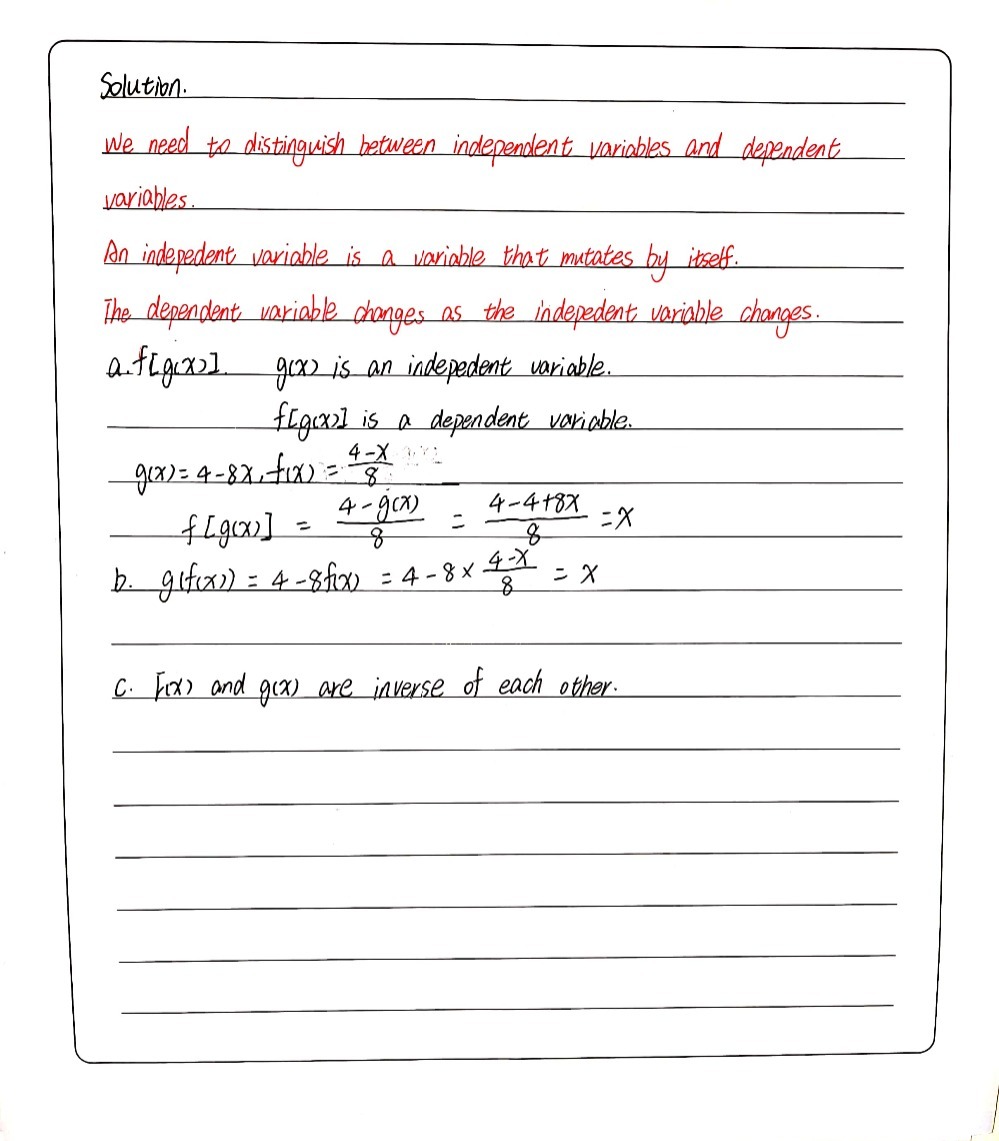 Solution.
We need to distinguish between independent variables and dependent
variables.
An indepedent variable is a variable that mutates by itself.
The dependent variable changes as the indepedent variable changes.
a. f[g(x)]. g(x) is an indepedent variable.
f[g(x)] is a dependent variable.
g(x) = 4-8x, f(x) = \frac{4-x}{8}
f[g(x)] = \frac{4-g(x)}{8} = \frac{4-4+8x}{8} = x
b. g(f(x)) = 4-8f(x) = 4-8 × \frac{4-x}{8} = x
c. f(x) and g(x) are inverse of each other.